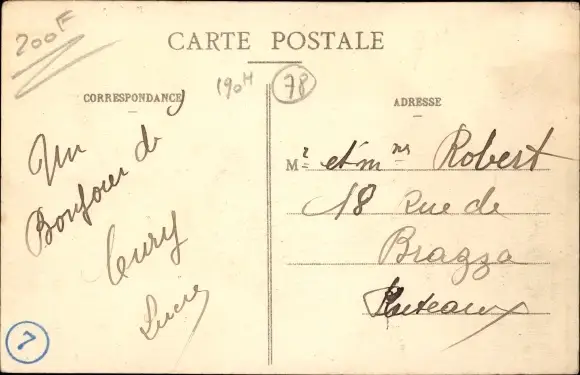 200F
CARTE POSTALE
190H
78
CORRESPONDANCE
ADRESSE
Un
Bonjour de
Lucie
M r et mme Robert
18 Rue de
Brazza
Puteaux
7